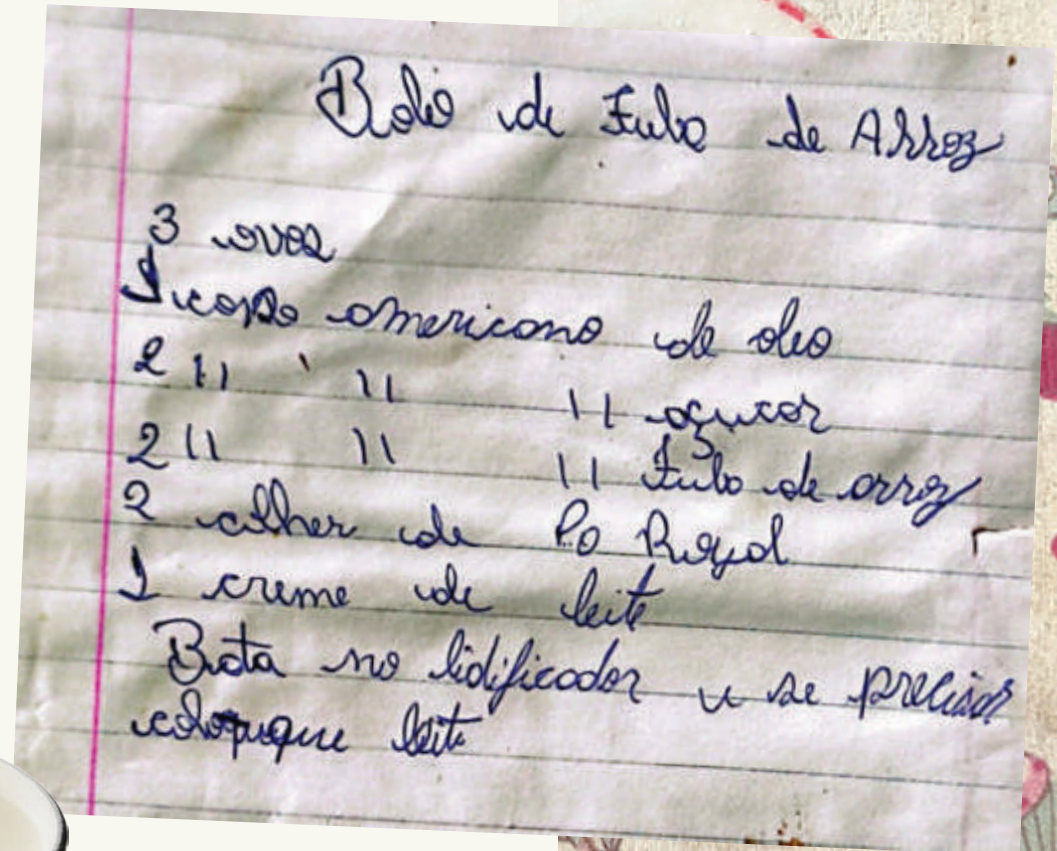 Bolo de Fuba de Arroz
3 ovos
1 copo americano de oleo
2 11 11 11 açucar
2 11 11 11 Fubo de arroz
2 colher de Po Royal
1 creme de leite
Bota no lidificador e se precisar
coloque leite